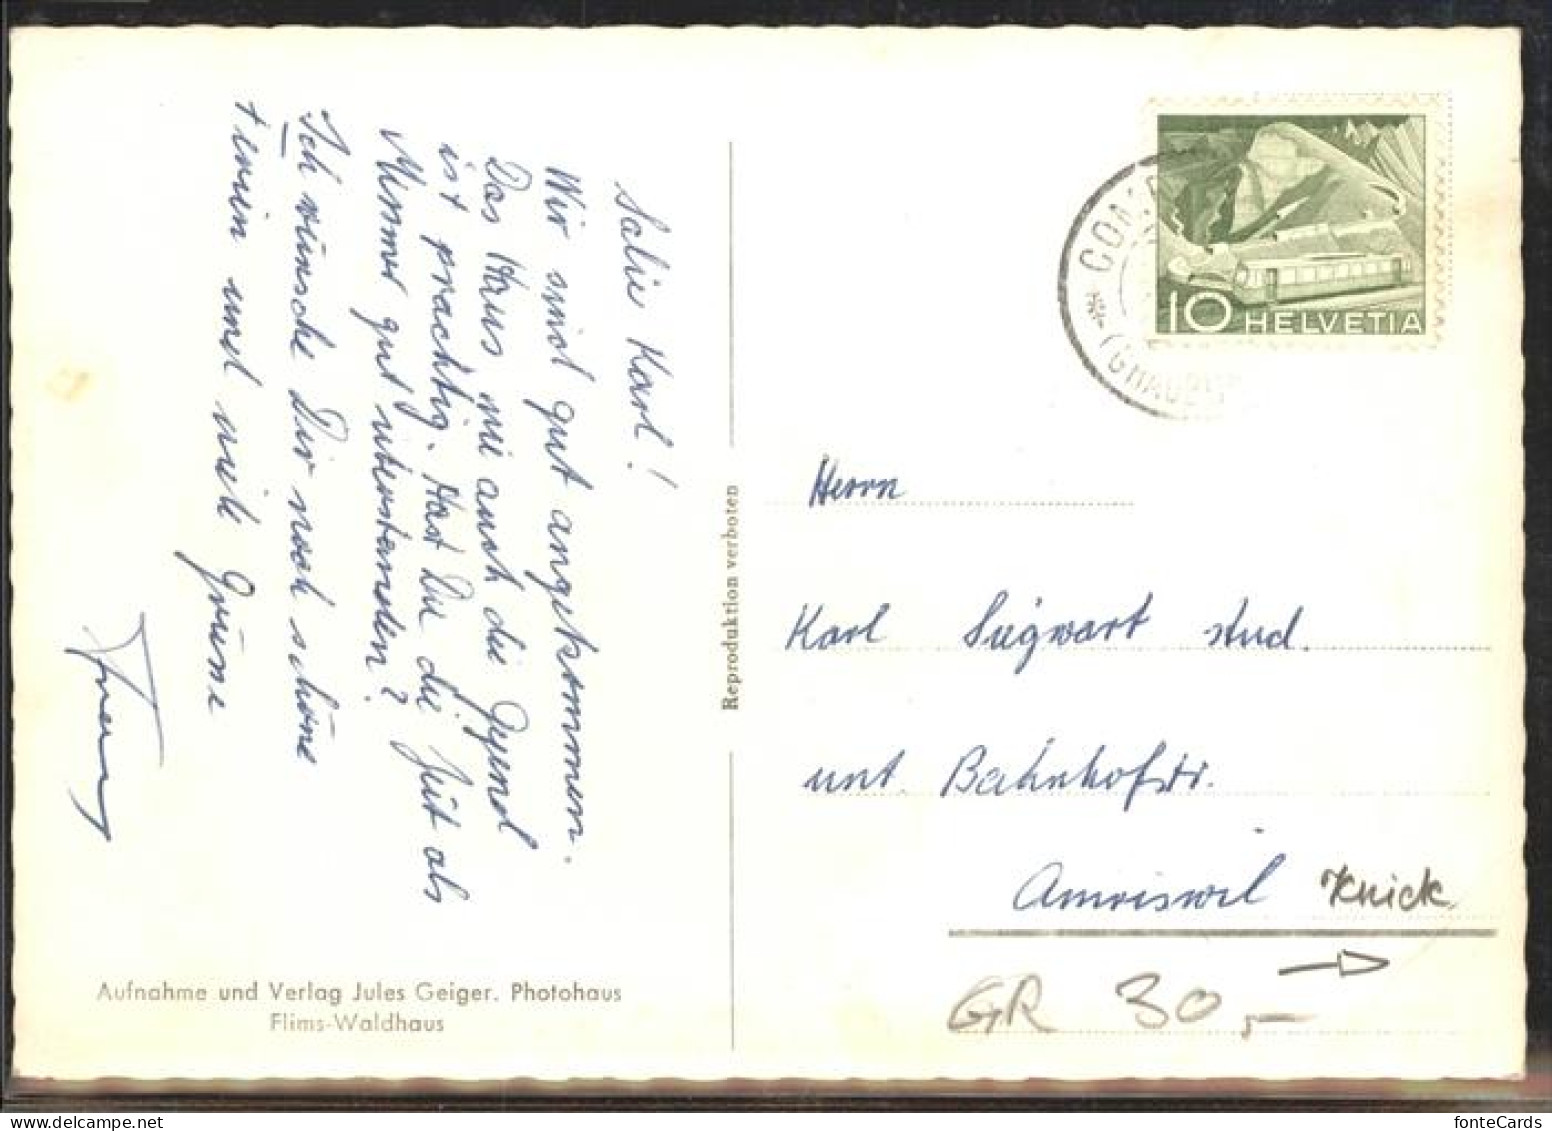 Salü Karl!
Wir sind gut angekommen.
Das Haus wie auch die Gegend
ist prächtig. Hast Du die Zeit als
Mumms gut überstanden?
Ich wünsche Dir noch schöne
Ferien und viele Grüsse
Aufnahme und Verlag Jules Geiger, Photohaus
Flims-Waldhaus
Reproduktion verboten
10 HELVETIA
Herrn
Karl Siegwart stud.
unt. Bahnhofstr.
Amriswil
Knick
GR 30,-
fonteCards